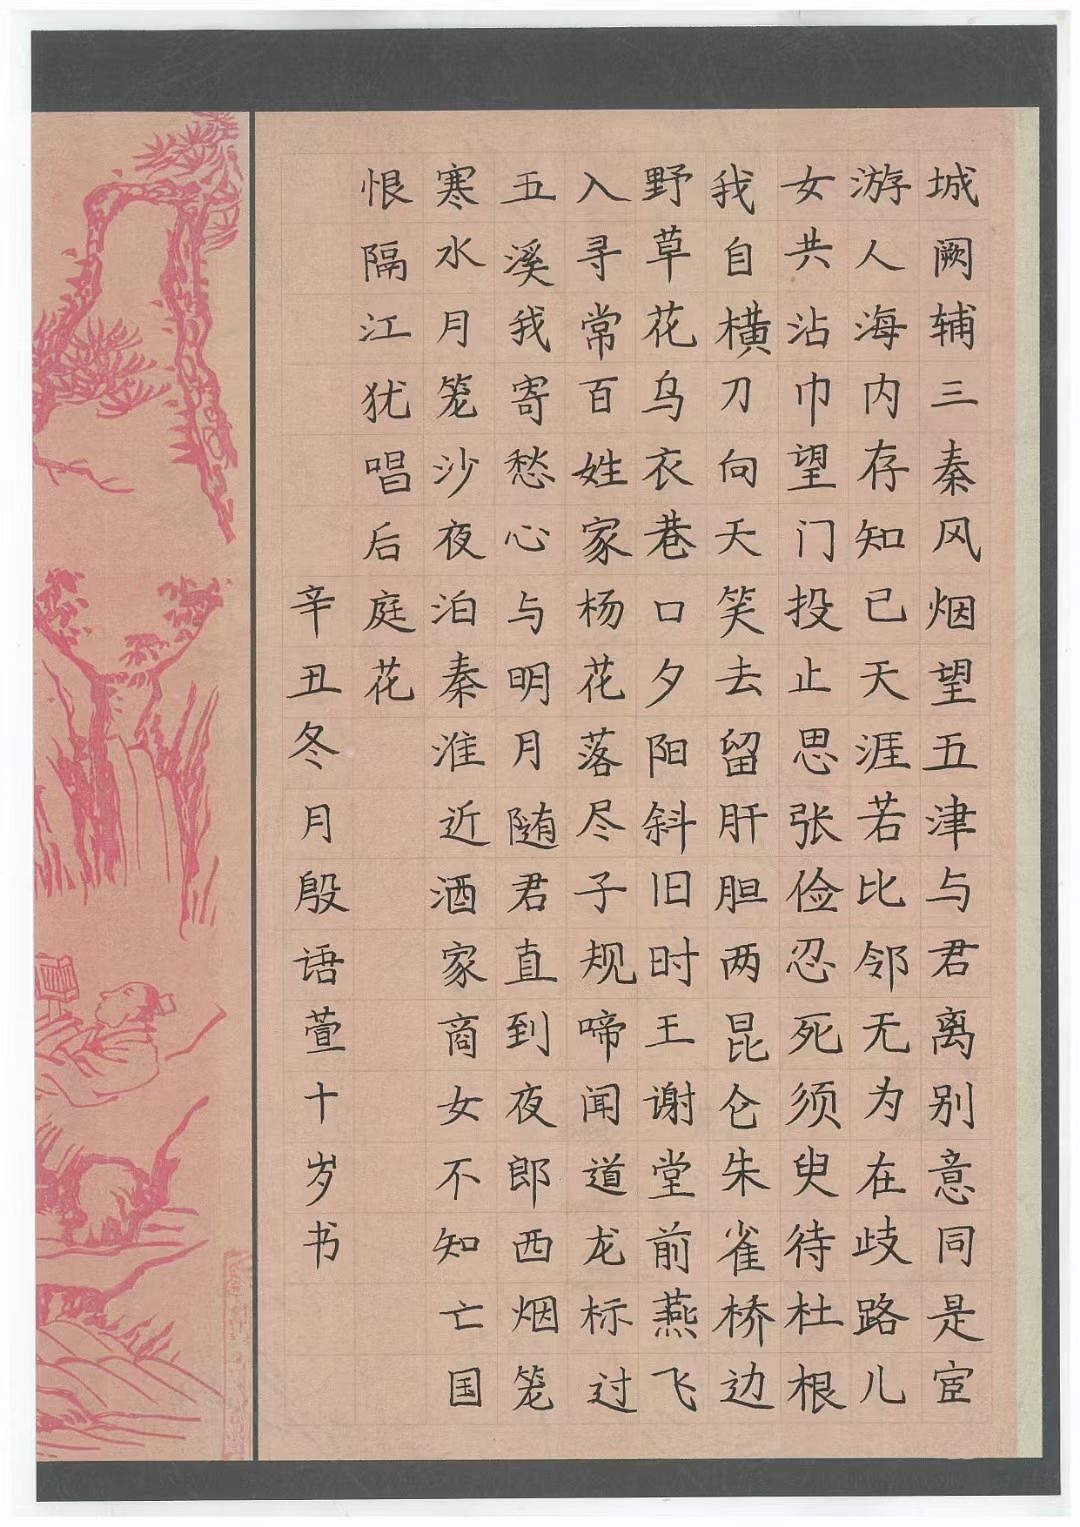 城阙辅三秦风烟望五津与君离别意同是宦
游人海内存知己天涯若比邻无为在歧路儿
女共沾巾望门投止思张俭忍死须臾待杜根
我自横刀向天笑去留肝胆两昆仑朱雀桥边
野草花乌衣巷口夕阳斜旧时王谢堂前燕飞
入寻常百姓家杨花落尽子规啼闻道龙标过
五溪我寄愁心与明月随君直到夜郎西烟笼
寒水月笼沙夜泊秦淮近酒家商女不知亡国
恨隔江犹唱后庭花
辛丑冬月殷语萱十岁书